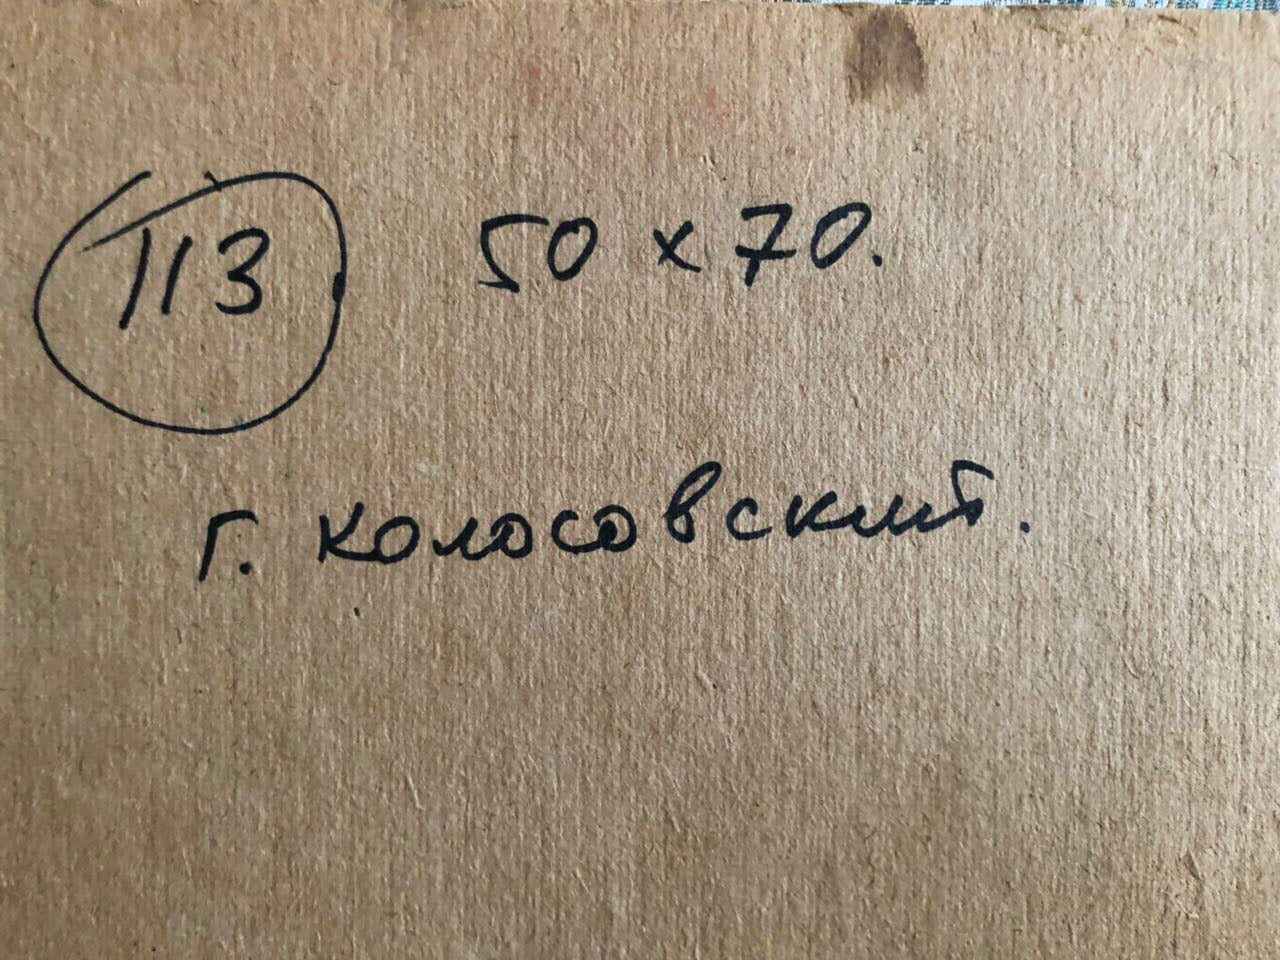 113 50 х 70.
г. Колосовский.